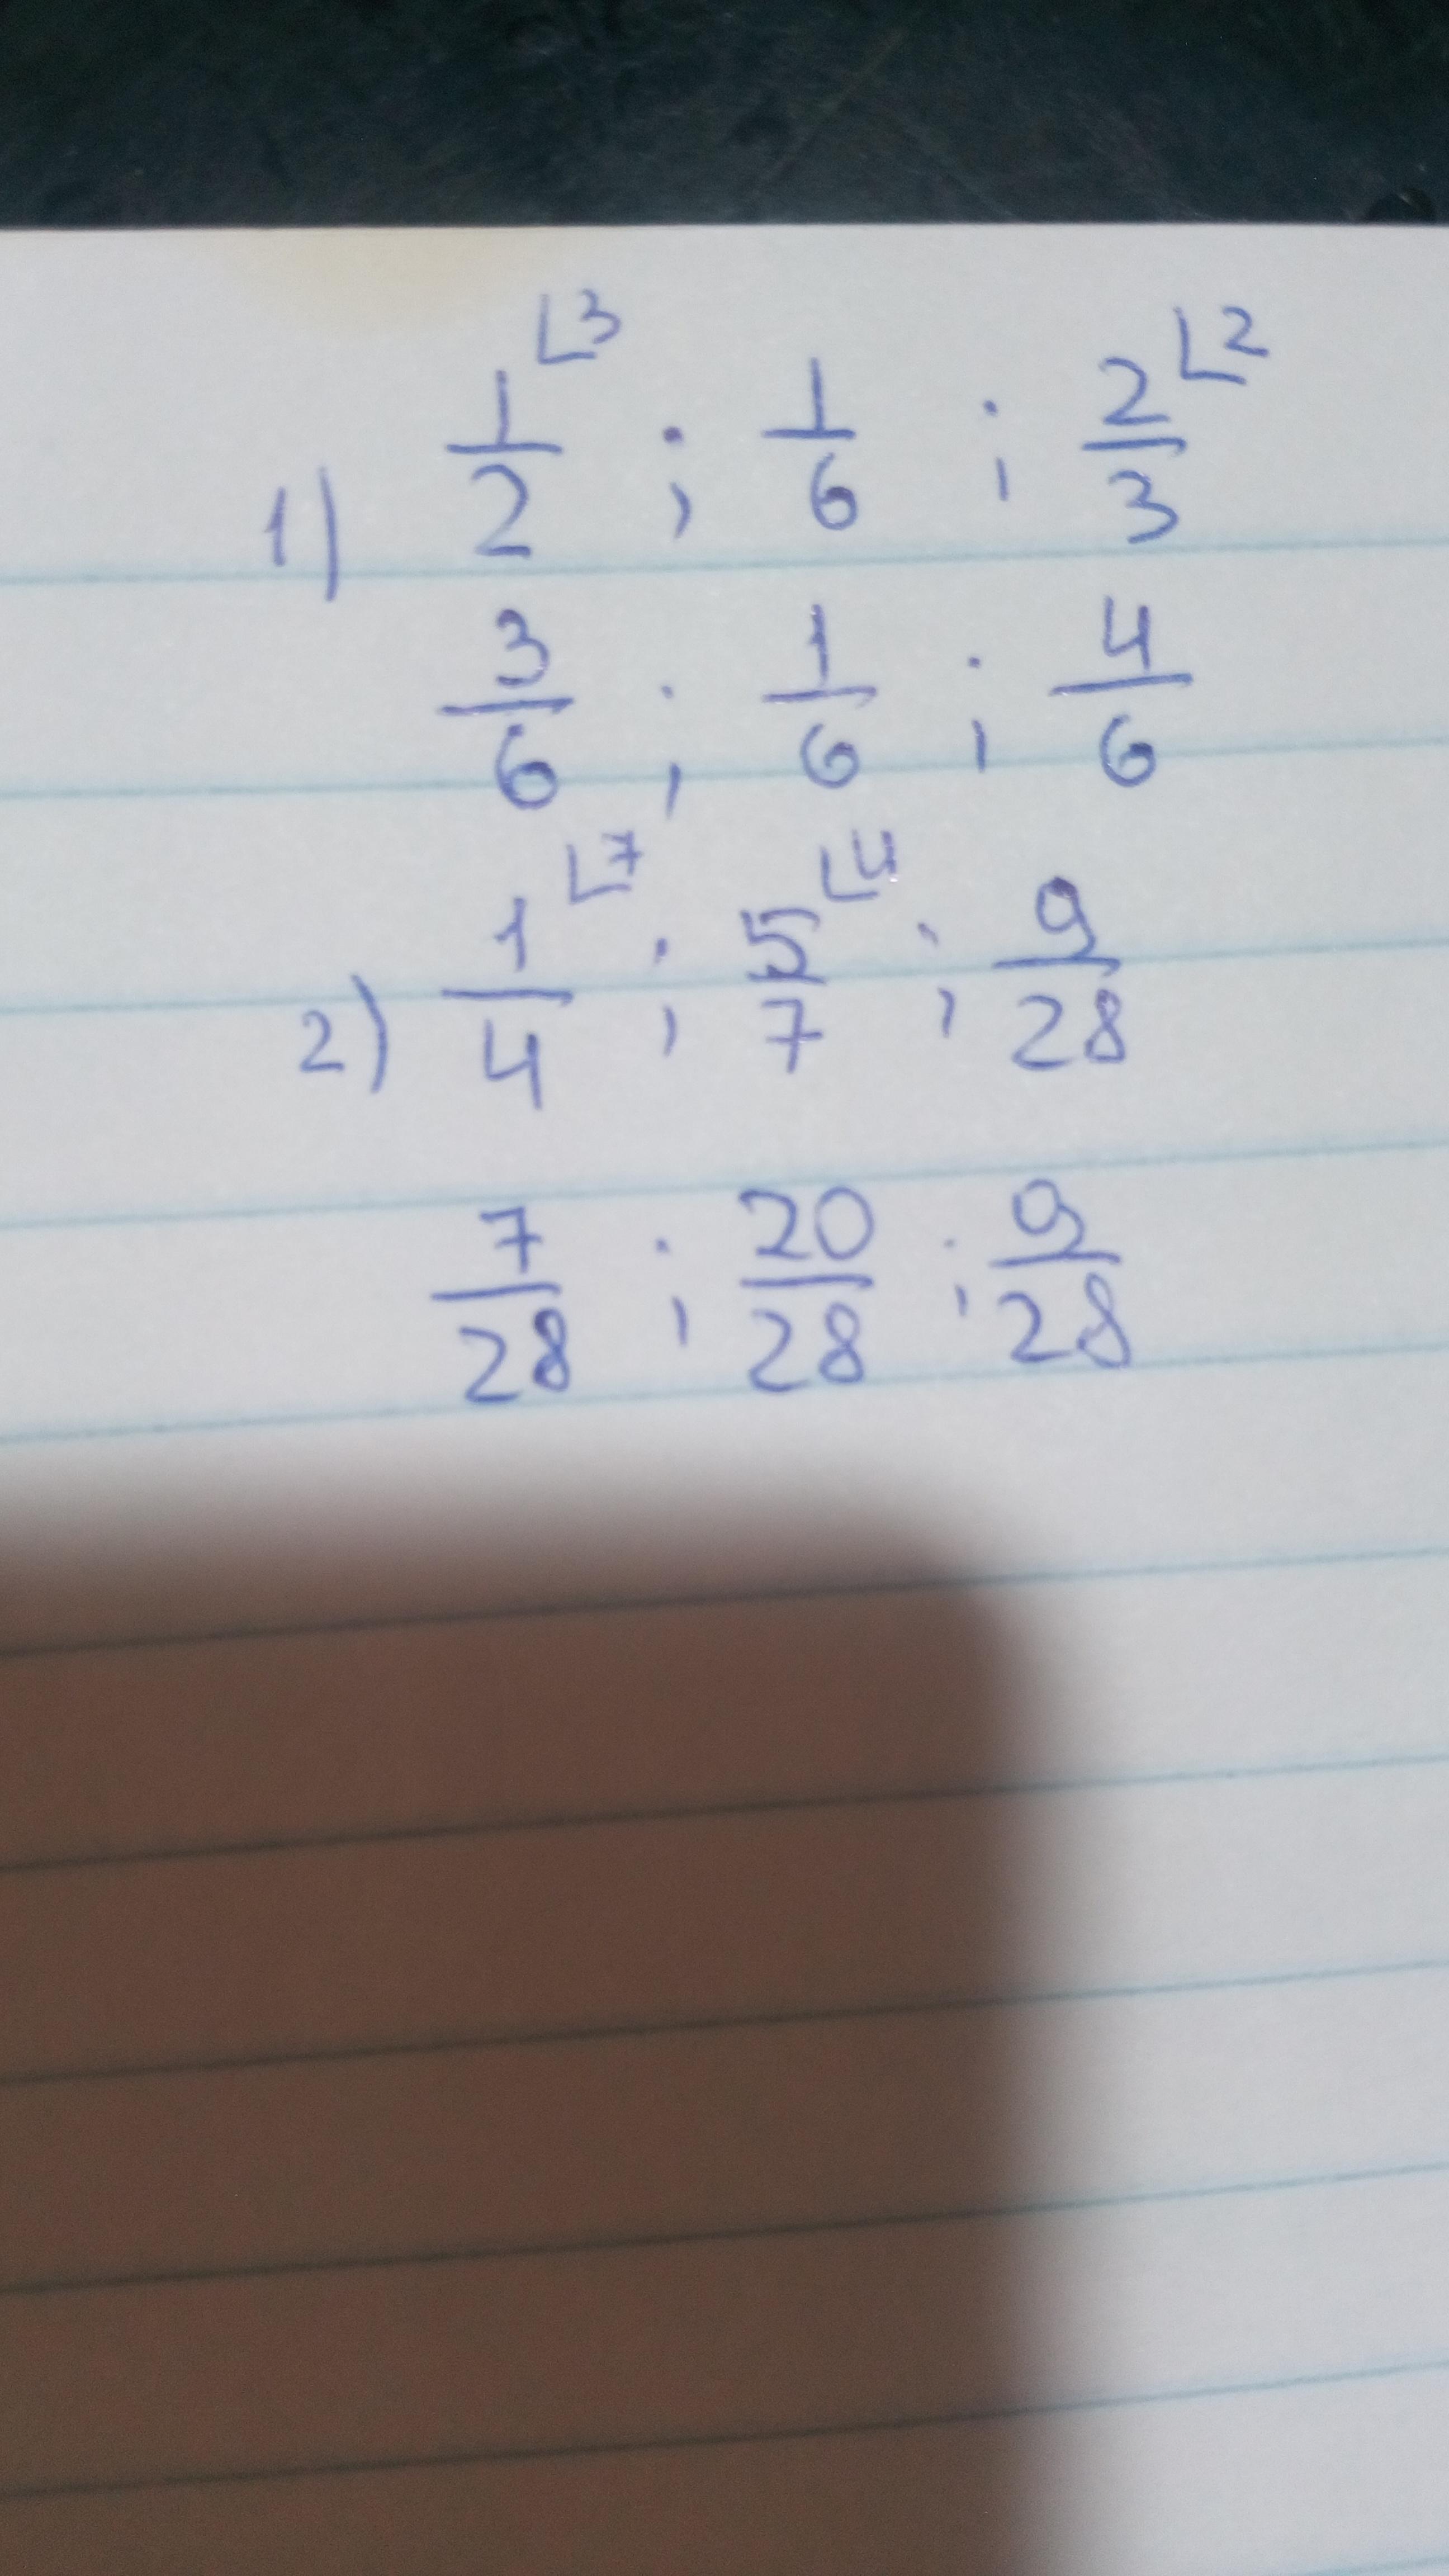 1) 1/2 ⌊3 ; 1/6 ; 2/3 ⌊2
3/6 ; 1/6 ; 4/6
2) 1/4 ⌊7 ; 5/7 ⌊4 ; 9/28
7/28 ; 20/28 ; 9/28